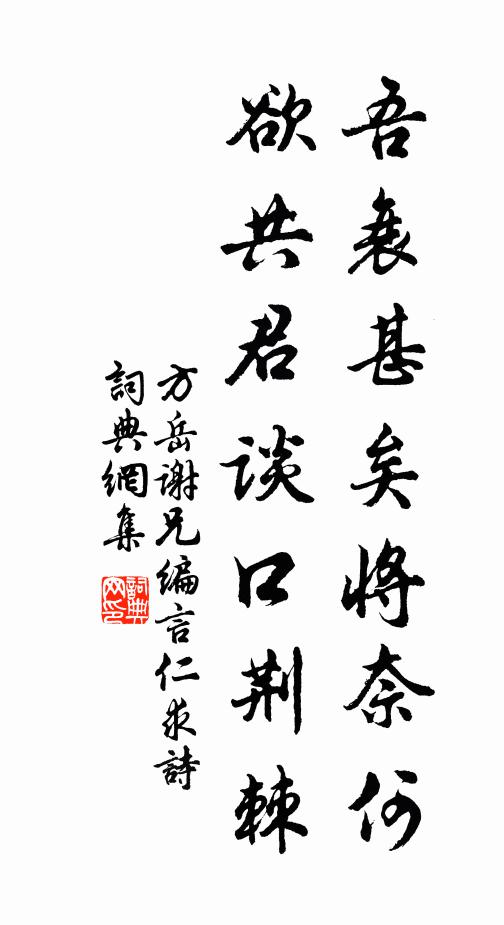 吾衰甚矣将奈何
欲共君谈口荆棘
方岳谢兄编言仁求詩
詞典網集
詞典
网印